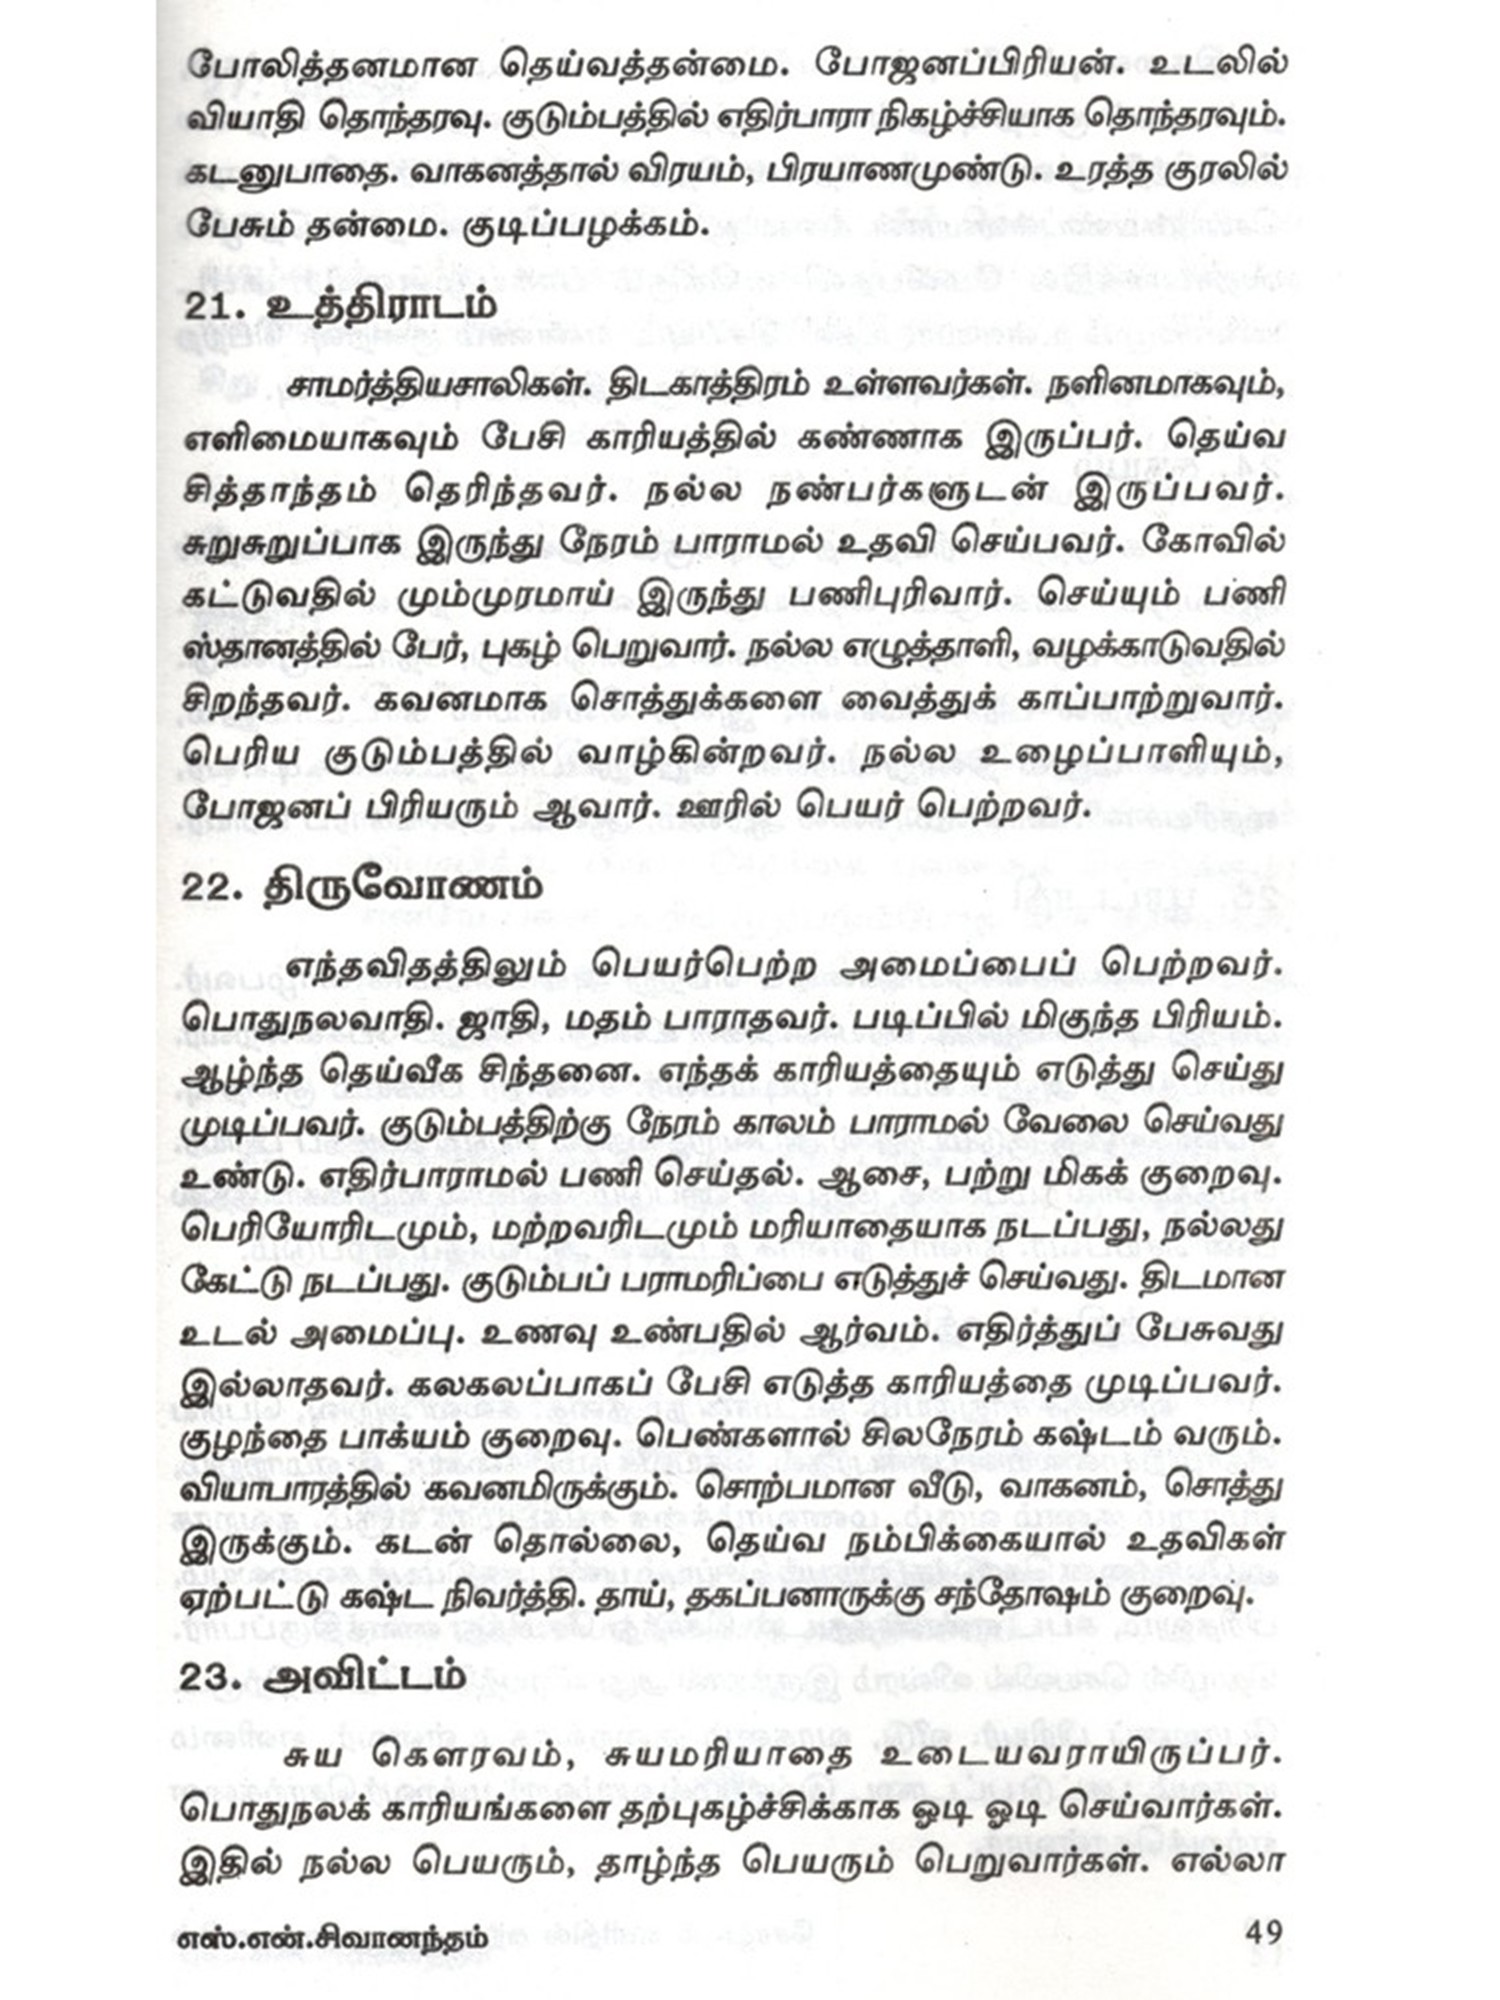 போலித்தனமான தெய்வத்தன்மை. போஜனப்பிரியன். உடலில்
வியாதி தொந்தரவு. குடும்பத்தில் எதிர்பாரா நிகழ்ச்சியாக தொந்தரவும்.
கடனுபாதை. வாகனத்தால் விரயம், பிரயாணமுண்டு. உரத்த குரலில்
பேசும் தன்மை. குடிப்பழக்கம்.
21. உத்திராடம்
சாமர்த்தியசாலிகள். திடகாத்திரம் உள்ளவர்கள். நளினமாகவும்,
எளிமையாகவும் பேசி காரியத்தில் கண்ணாக இருப்பர். தெய்வ
சித்தாந்தம் தெரிந்தவர். நல்ல நண்பர்களுடன் இருப்பவர்.
சுறுசுறுப்பாக இருந்து நேரம் பாராமல் உதவி செய்பவர். கோவில்
கட்டுவதில் மும்முரமாய் இருந்து பணிபுரிவார். செய்யும் பணி
ஸ்தானத்தில் பேர், புகழ் பெறுவார். நல்ல எழுத்தாளி, வழக்காடுவதில்
சிறந்தவர். கவனமாக சொத்துக்களை வைத்துக் காப்பாற்றுவார்.
பெரிய குடும்பத்தில் வாழ்கின்றவர். நல்ல உழைப்பாளியும்,
போஜனப் பிரியரும் ஆவார். ஊரில் பெயர் பெற்றவர்.
22. திருவோணம்
எந்தவிதத்திலும் பெயர்பெற்ற அமைப்பைப் பெற்றவர்.
பொதுநலவாதி. ஜாதி, மதம் பாராதவர். படிப்பில் மிகுந்த பிரியம்.
ஆழ்ந்த தெய்வீக சிந்தனை. எந்தக் காரியத்தையும் எடுத்து செய்து
முடிப்பவர். குடும்பத்திற்கு நேரம் காலம் பாராமல் வேலை செய்வது
உண்டு. எதிர்பாராமல் பணி செய்தல். ஆசை, பற்று மிகக் குறைவு.
பெரியோரிடமும், மற்றவரிடமும் மரியாதையாக நடப்பது, நல்லது
கேட்டு நடப்பது. குடும்பப் பராமரிப்பை எடுத்துச் செய்வது. திடமான
உடல் அமைப்பு. உணவு உண்பதில் ஆர்வம். எதிர்த்துப் பேசுவது
இல்லாதவர். கலகலப்பாகப் பேசி எடுத்த காரியத்தை முடிப்பவர்.
குழந்தை பாக்யம் குறைவு. பெண்களால் சிலநேரம் கஷ்டம் வரும்.
வியாபாரத்தில் கவனமிருக்கும். சொற்பமான வீடு, வாகனம், சொத்து
இருக்கும். கடன் தொல்லை, தெய்வ நம்பிக்கையால் உதவிகள்
ஏற்பட்டு கஷ்ட நிவர்த்தி. தாய், தகப்பனாருக்கு சந்தோஷம் குறைவு.
23. அவிட்டம்
சுய கௌரவம், சுயமரியாதை உடையவராயிருப்பர்.
பொதுநலக் காரியங்களை தற்புகழ்ச்சிக்காக ஓடி ஓடி செய்வார்கள்.
இதில் நல்ல பெயரும், தாழ்ந்த பெயரும் பெறுவார்கள். எல்லா
எஸ்.என்.சிவானந்தம் 49